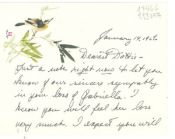 January 18, 1960
Dearest Doris -
Just a note right now to let you
know of our sincere sympathy
in your loss of Gabrielle. I
know you will feel her loss
very much. I expect you will